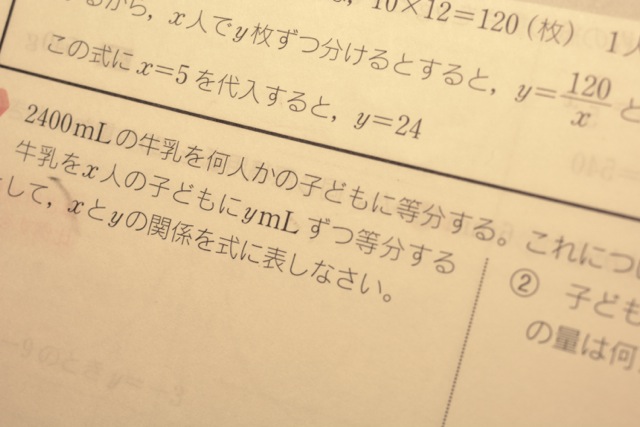 るから，x人でy枚ずつ分けるとすると，y=120/x と
10×12=120（枚） 1人
この式に x=5 を代入すると，y=24
2400mLの牛乳を何人かの子どもに等分する。これについ
牛乳をx人の子どもにymLずつ等分する
して，xとyの関係を式に表しなさい。
② 子ども
の量は何